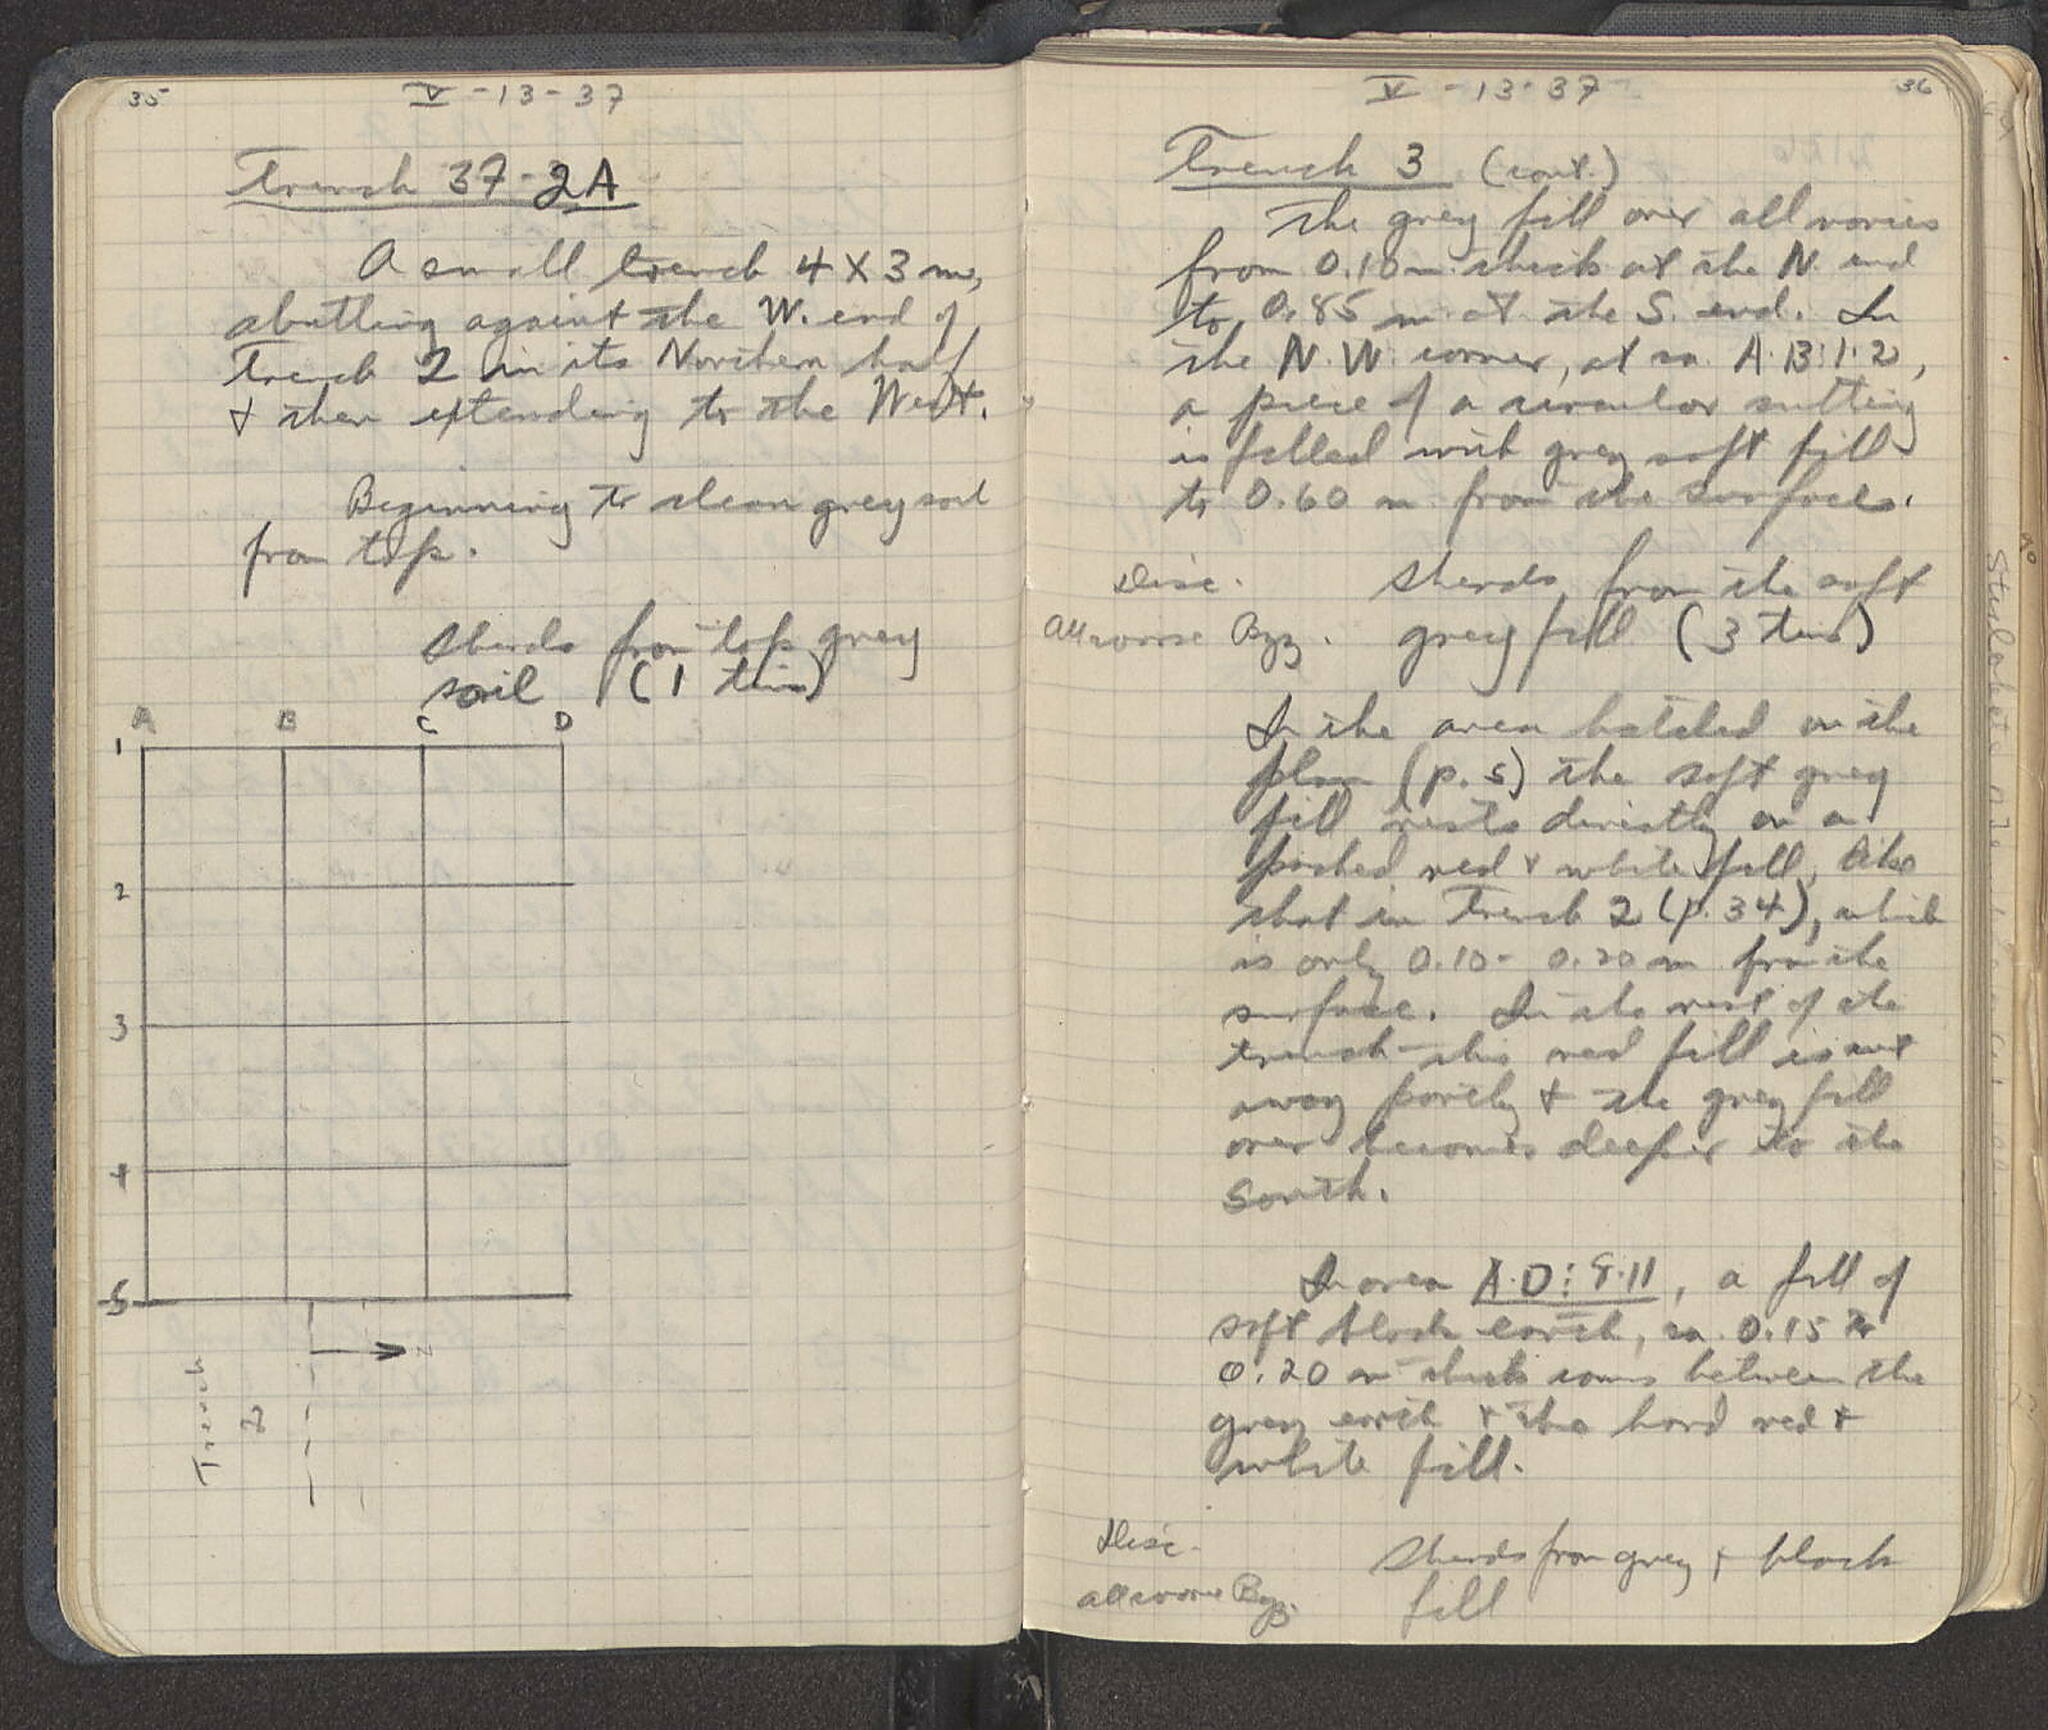 35
V - 13 - 37
Trench 37-2A
A small trench 4 X 3 m,
abutting against the W. end of
Trench 2 in its Northern half
& then extending to the West.
Beginning to clean grey soil
from top.
Sherds from top grey
soil (1 tin)
A B C D
1
2
3
4
5
N
Trench
2
V - 13 - 37
36
Trench 3 (cont.)
The grey fill over all varies
from 0.10 m. thick at the N. end
to 0.85 m. at the S. end. In
the N.W. corner, at ca. A.B:1.2,
a piece of a circular cutting
is filled with grey soft fill
to 0.60 m from the surface.
Disc. Sherds from the soft
All coarse Byz. grey fill (3 tins)
In the area hatched on the
plan (p. 5) the soft grey
fill rests directly on a
packed red & white fill, like
that in Trench 2 (p. 34), which
is only 0.10 - 0.20 m from the
surface. In the rest of the
trench this red fill is cut
away partly & the grey fill
over becomes deeper to the
South.
In area A.D:9.11, a fill of
soft black earth, ca. 0.15 to
0.20 m thick comes between the
grey earth & the hard red &
white fill.
Disc. Sherds from grey & black
all coarse Byz. fill